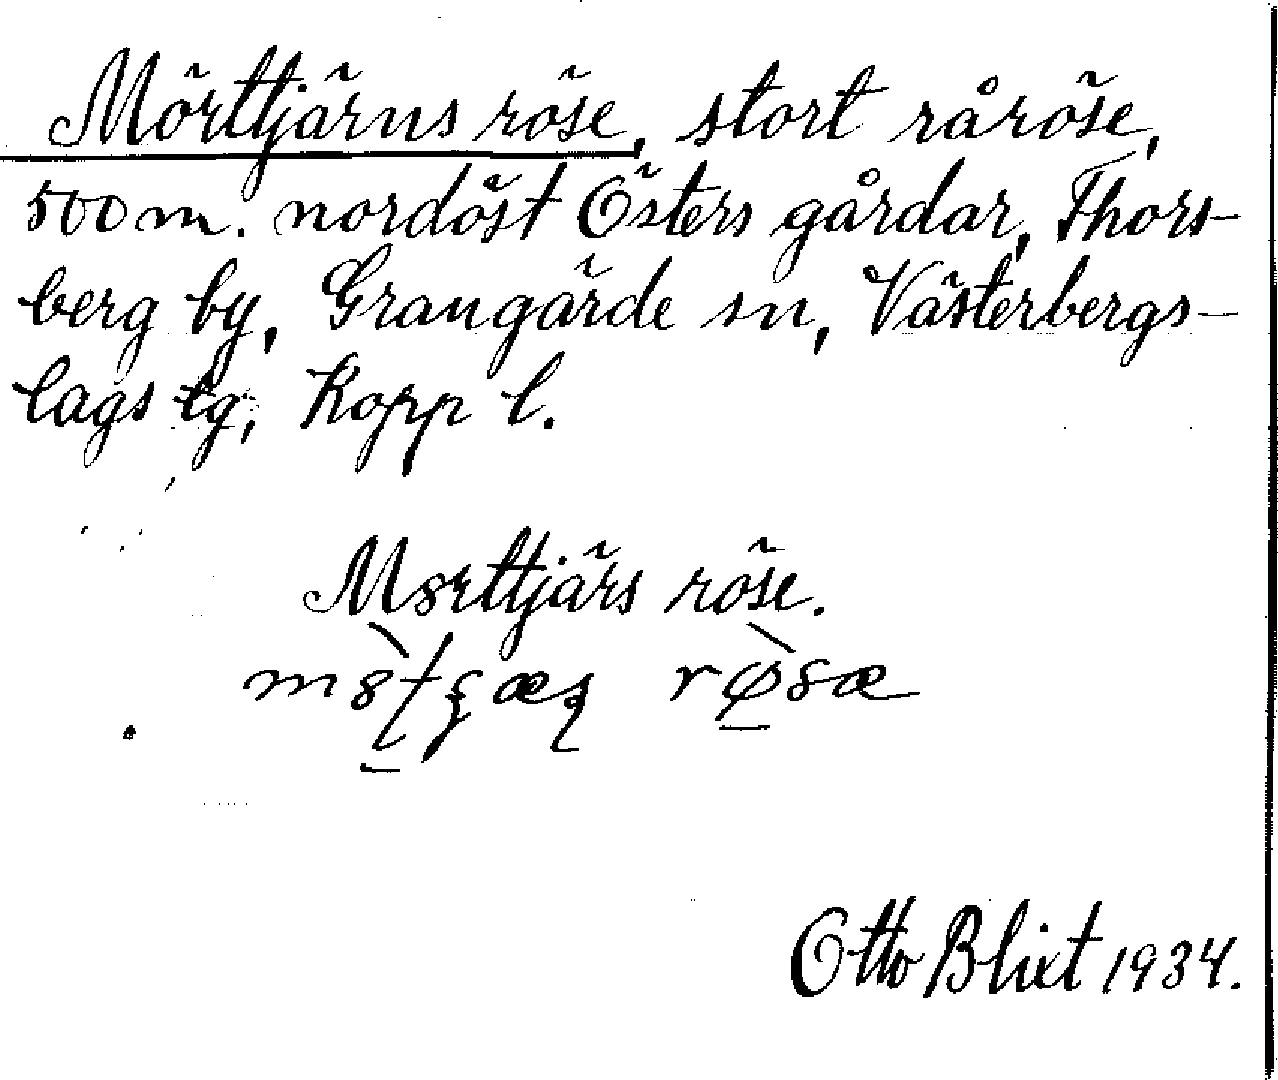 Mörttjärns röse, stort råröse,
500 m. nordöst Östers gårdar, Thors-
berg by, Grangärde sn, Västerbergs-
lags tg, Kopp l.
M8rttjärs röse.
røsæ
Otto Blixt 1934.